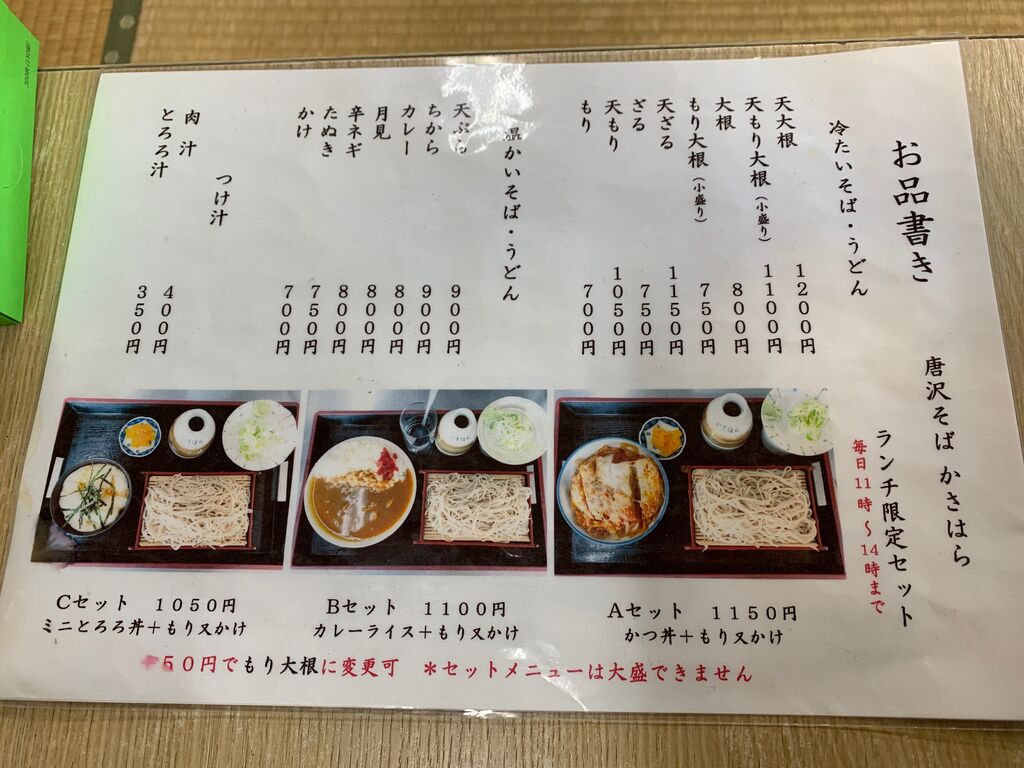 お品書き
唐沢そば かさはら
冷たいそば・うどん
天大根 1200円
天もり大根(小盛り) 1100円
大根 800円
もり大根(小盛り) 750円
天ざる 1150円
ざる 750円
天もり 1050円
もり 700円
温かいそば・うどん
天ぷら 900円
ちから 900円
カレー 800円
月見 800円
辛ネギ 800円
たぬき 750円
かけ 700円
つけ汁
肉汁 400円
とろろ汁 350円
ランチ限定セット
毎日11時~14時まで
Aセット 1150円
かつ丼+もり又かけ
Bセット 1100円
カレーライス+もり又かけ
Cセット 1050円
ミニとろろ丼+もり又かけ
+50円でもり大根に変更可 *セットメニューは大盛できません